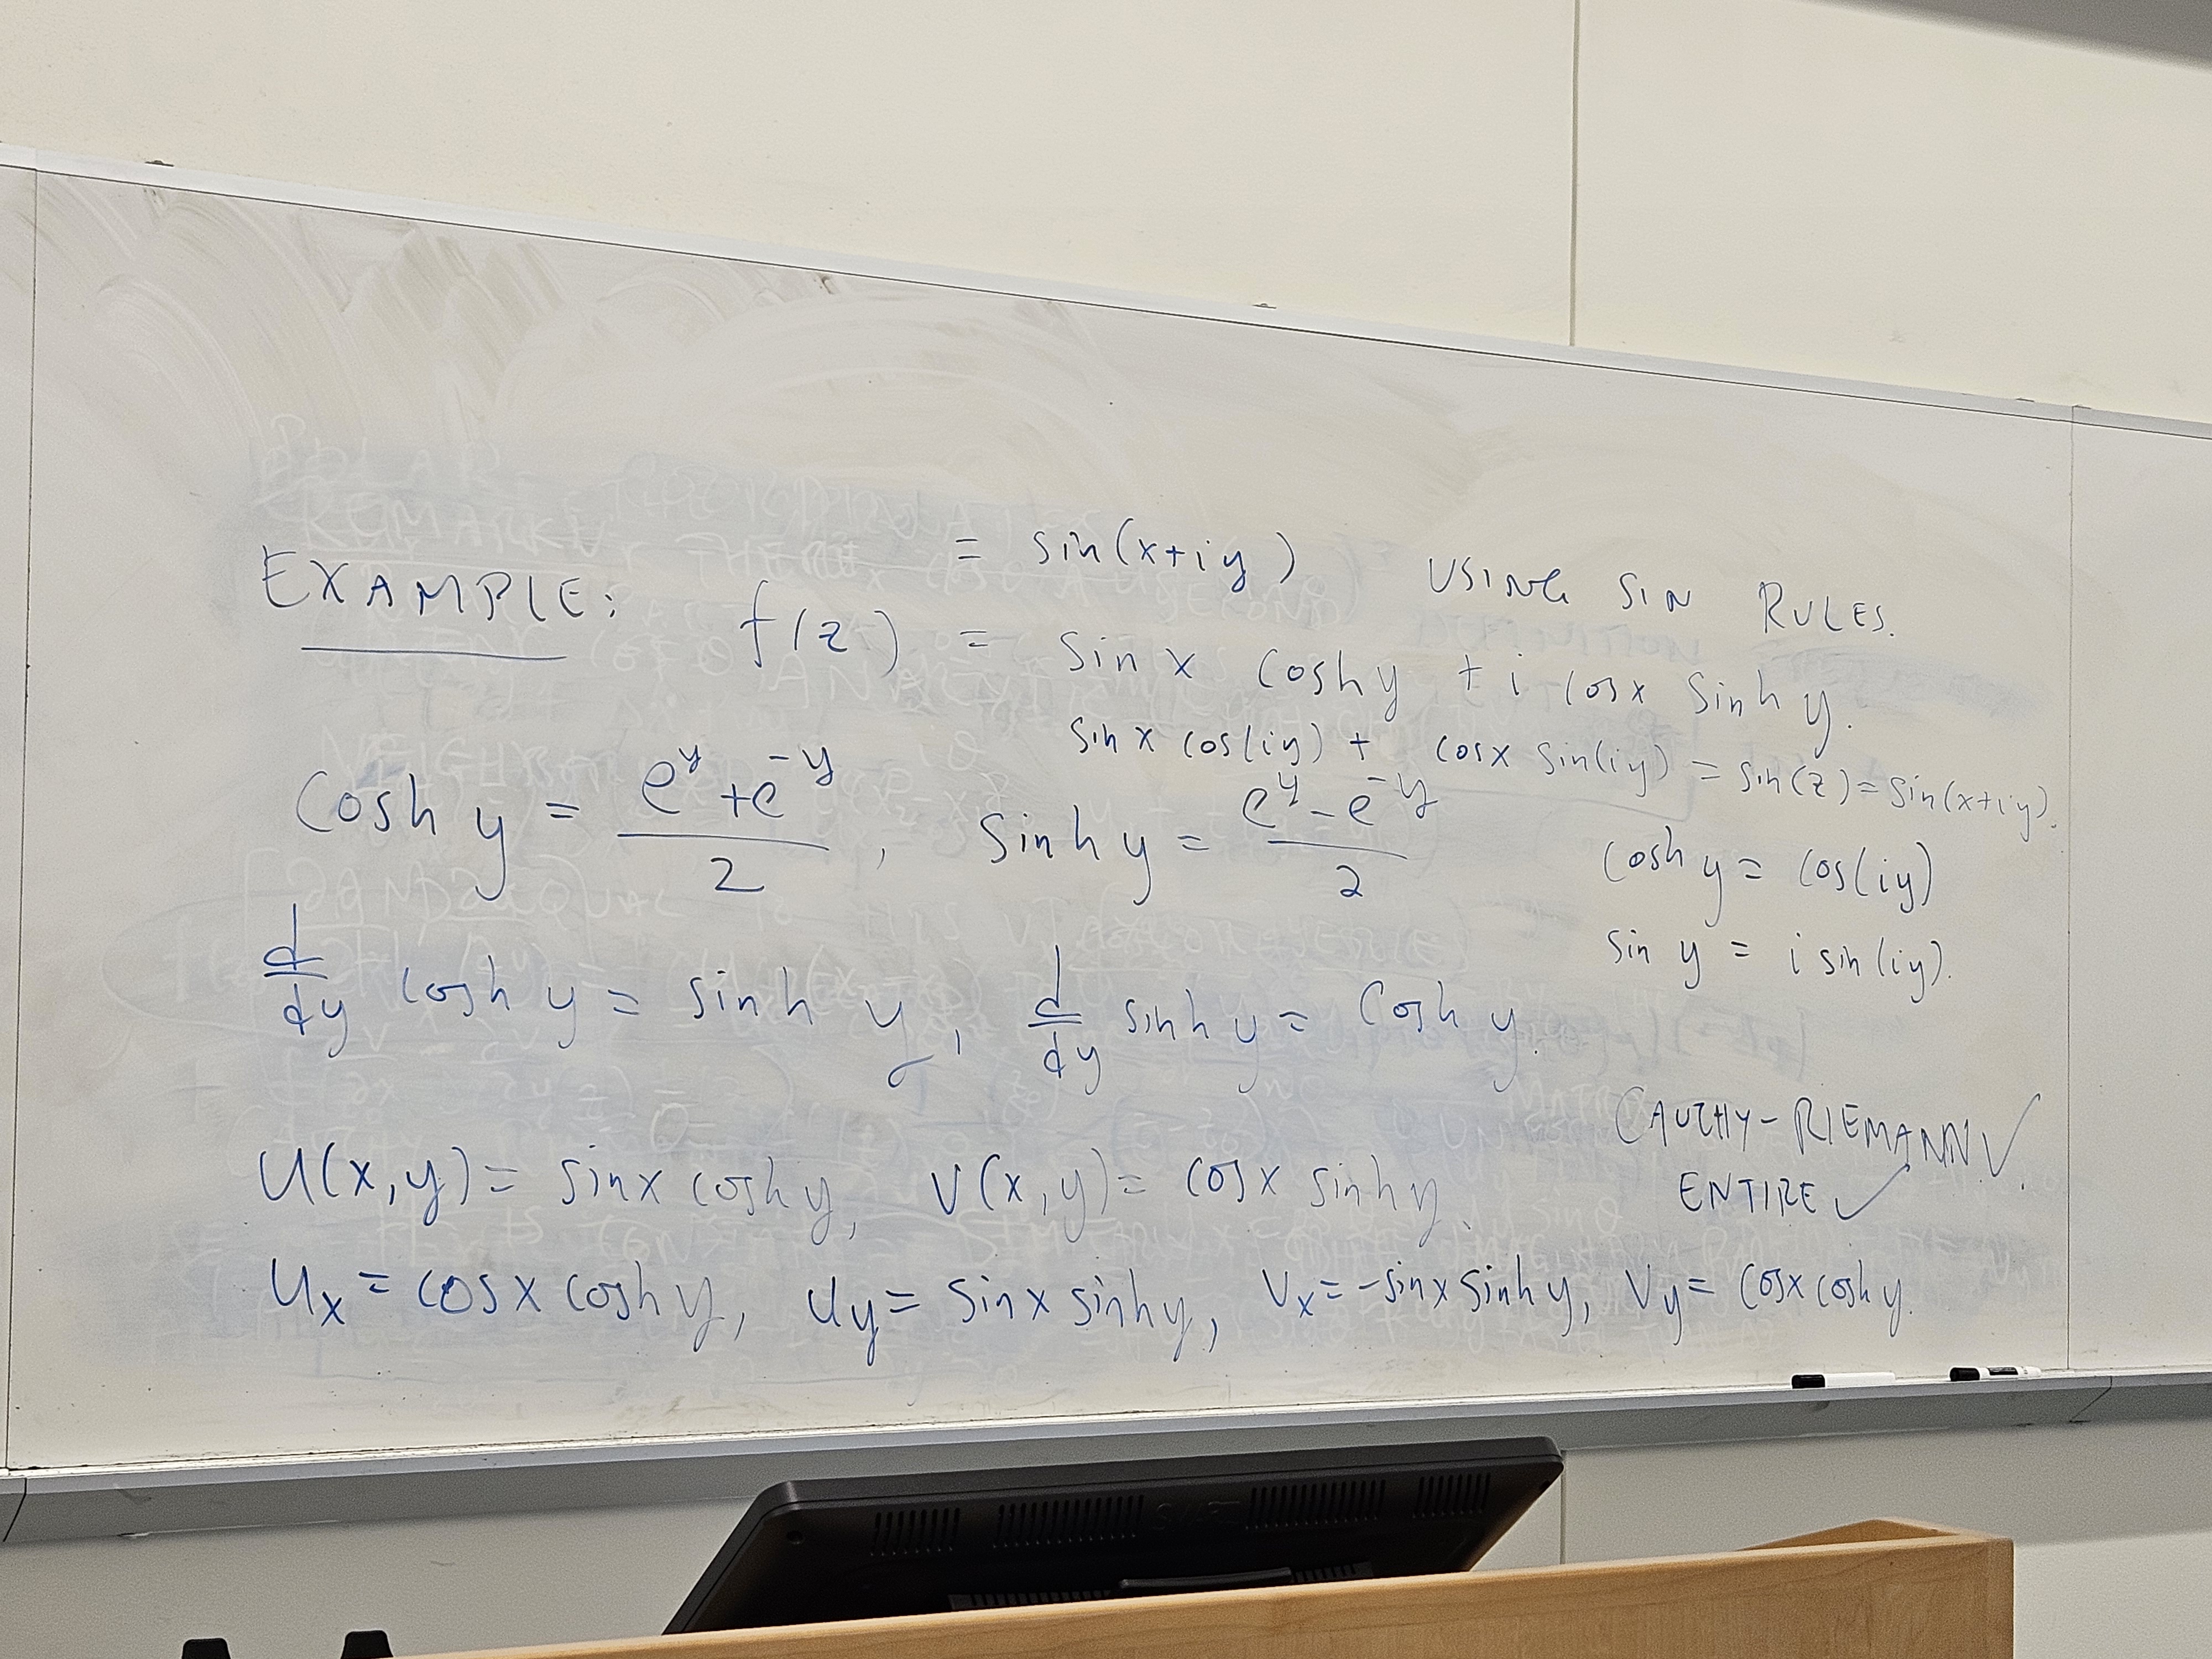 = sin(x+iy) USING SIN RULES.
EXAMPLE: f(z) = sin x cosh y + i cos x sinh y.
sin x cos(iy) + cosx sin(iy) = sin(z) = sin(x+iy).
cosh y = (e^y + e^-y)/2, sinh y = (e^y - e^-y)/2
cosh y = cos(iy)
sin y = i sin(iy).
d/dy cosh y = sinh y, d/dy sinh y = cosh y.
CAUCHY-RIEMANN ✓.
ENTIRE ✓
u(x,y) = sinx coshy, v(x,y) = cosx sinhy.
u_x = cosx coshy, u_y = sinx sinhy, v_x = -sinx sinhy, v_y = cosx coshy.